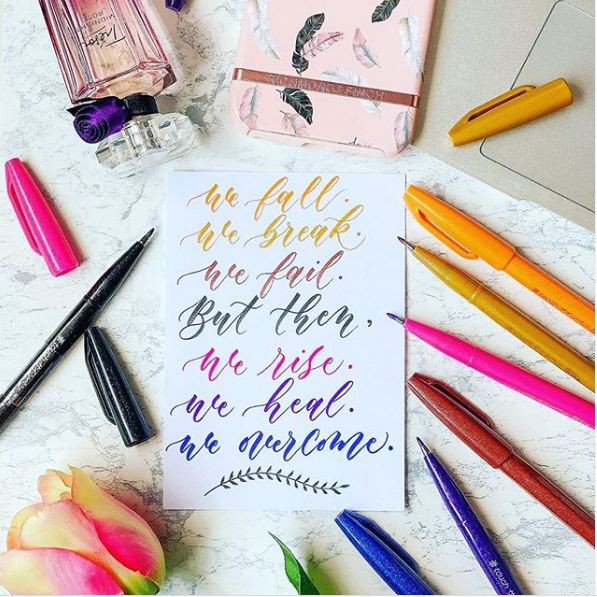 Trésor
MIDNIGHT ROSE
RICHMOND & FINCH
we fall.
we break.
we fail.
But then,
we rise.
we heal.
we overcome.
touch